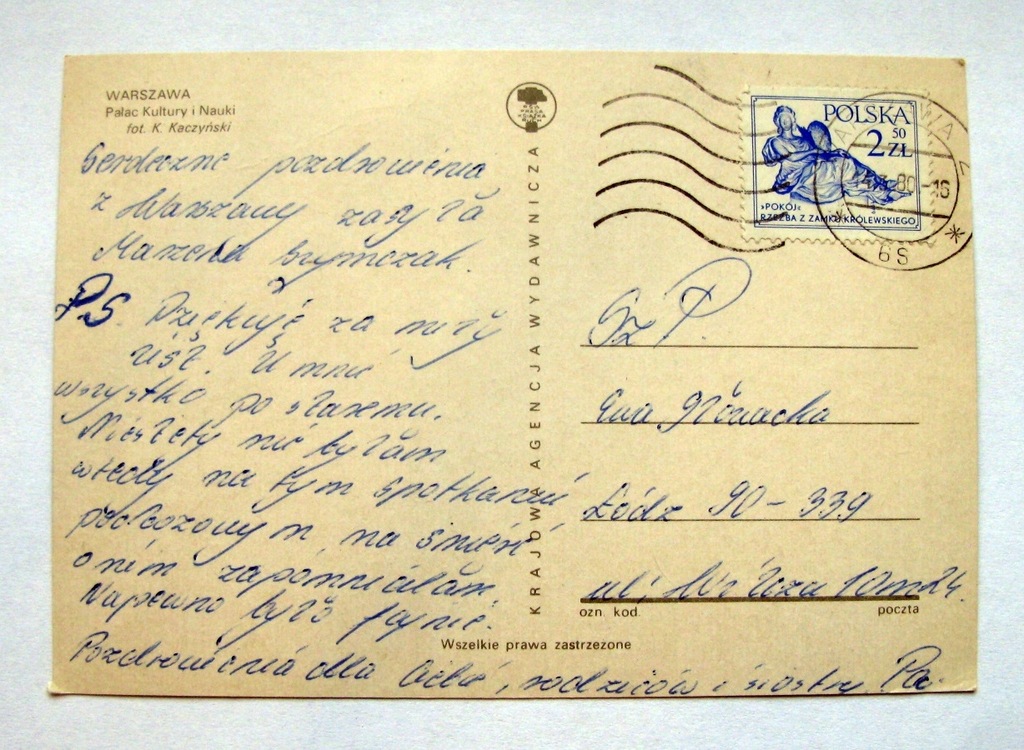 WARSZAWA
Pałac Kultury i Nauki
fot. K. Kaczyński
Serdeczne pozdrowienia
z Warszawy zasyła
Marzena Szymczak.
PS. Dziękuję za miły
list. U mnie
wszystko po staremu.
Niestety nie byłam
wtedy na tym spotkaniu
na śmierć
o nim zapomniałam.
Napewno było fajnie.
Pozdrowienia dla Ciebie, rodziców i siostry Pa.
KRAJOWA AGENCJA WYDAWNICZA
RSW
PRASA
KSIĄŻKA
RUCH
POLSKA
2 50 ZŁ
»POKÓJ«
RZEŹBA Z ZAMKU KRÓLEWSKIEGO
80-16
6S
Sz P.
Ewa Nowacka
Łódź 90-339
ul. 10m24.
ozn. kod. poczta
Wszelkie prawa zastrzeżone